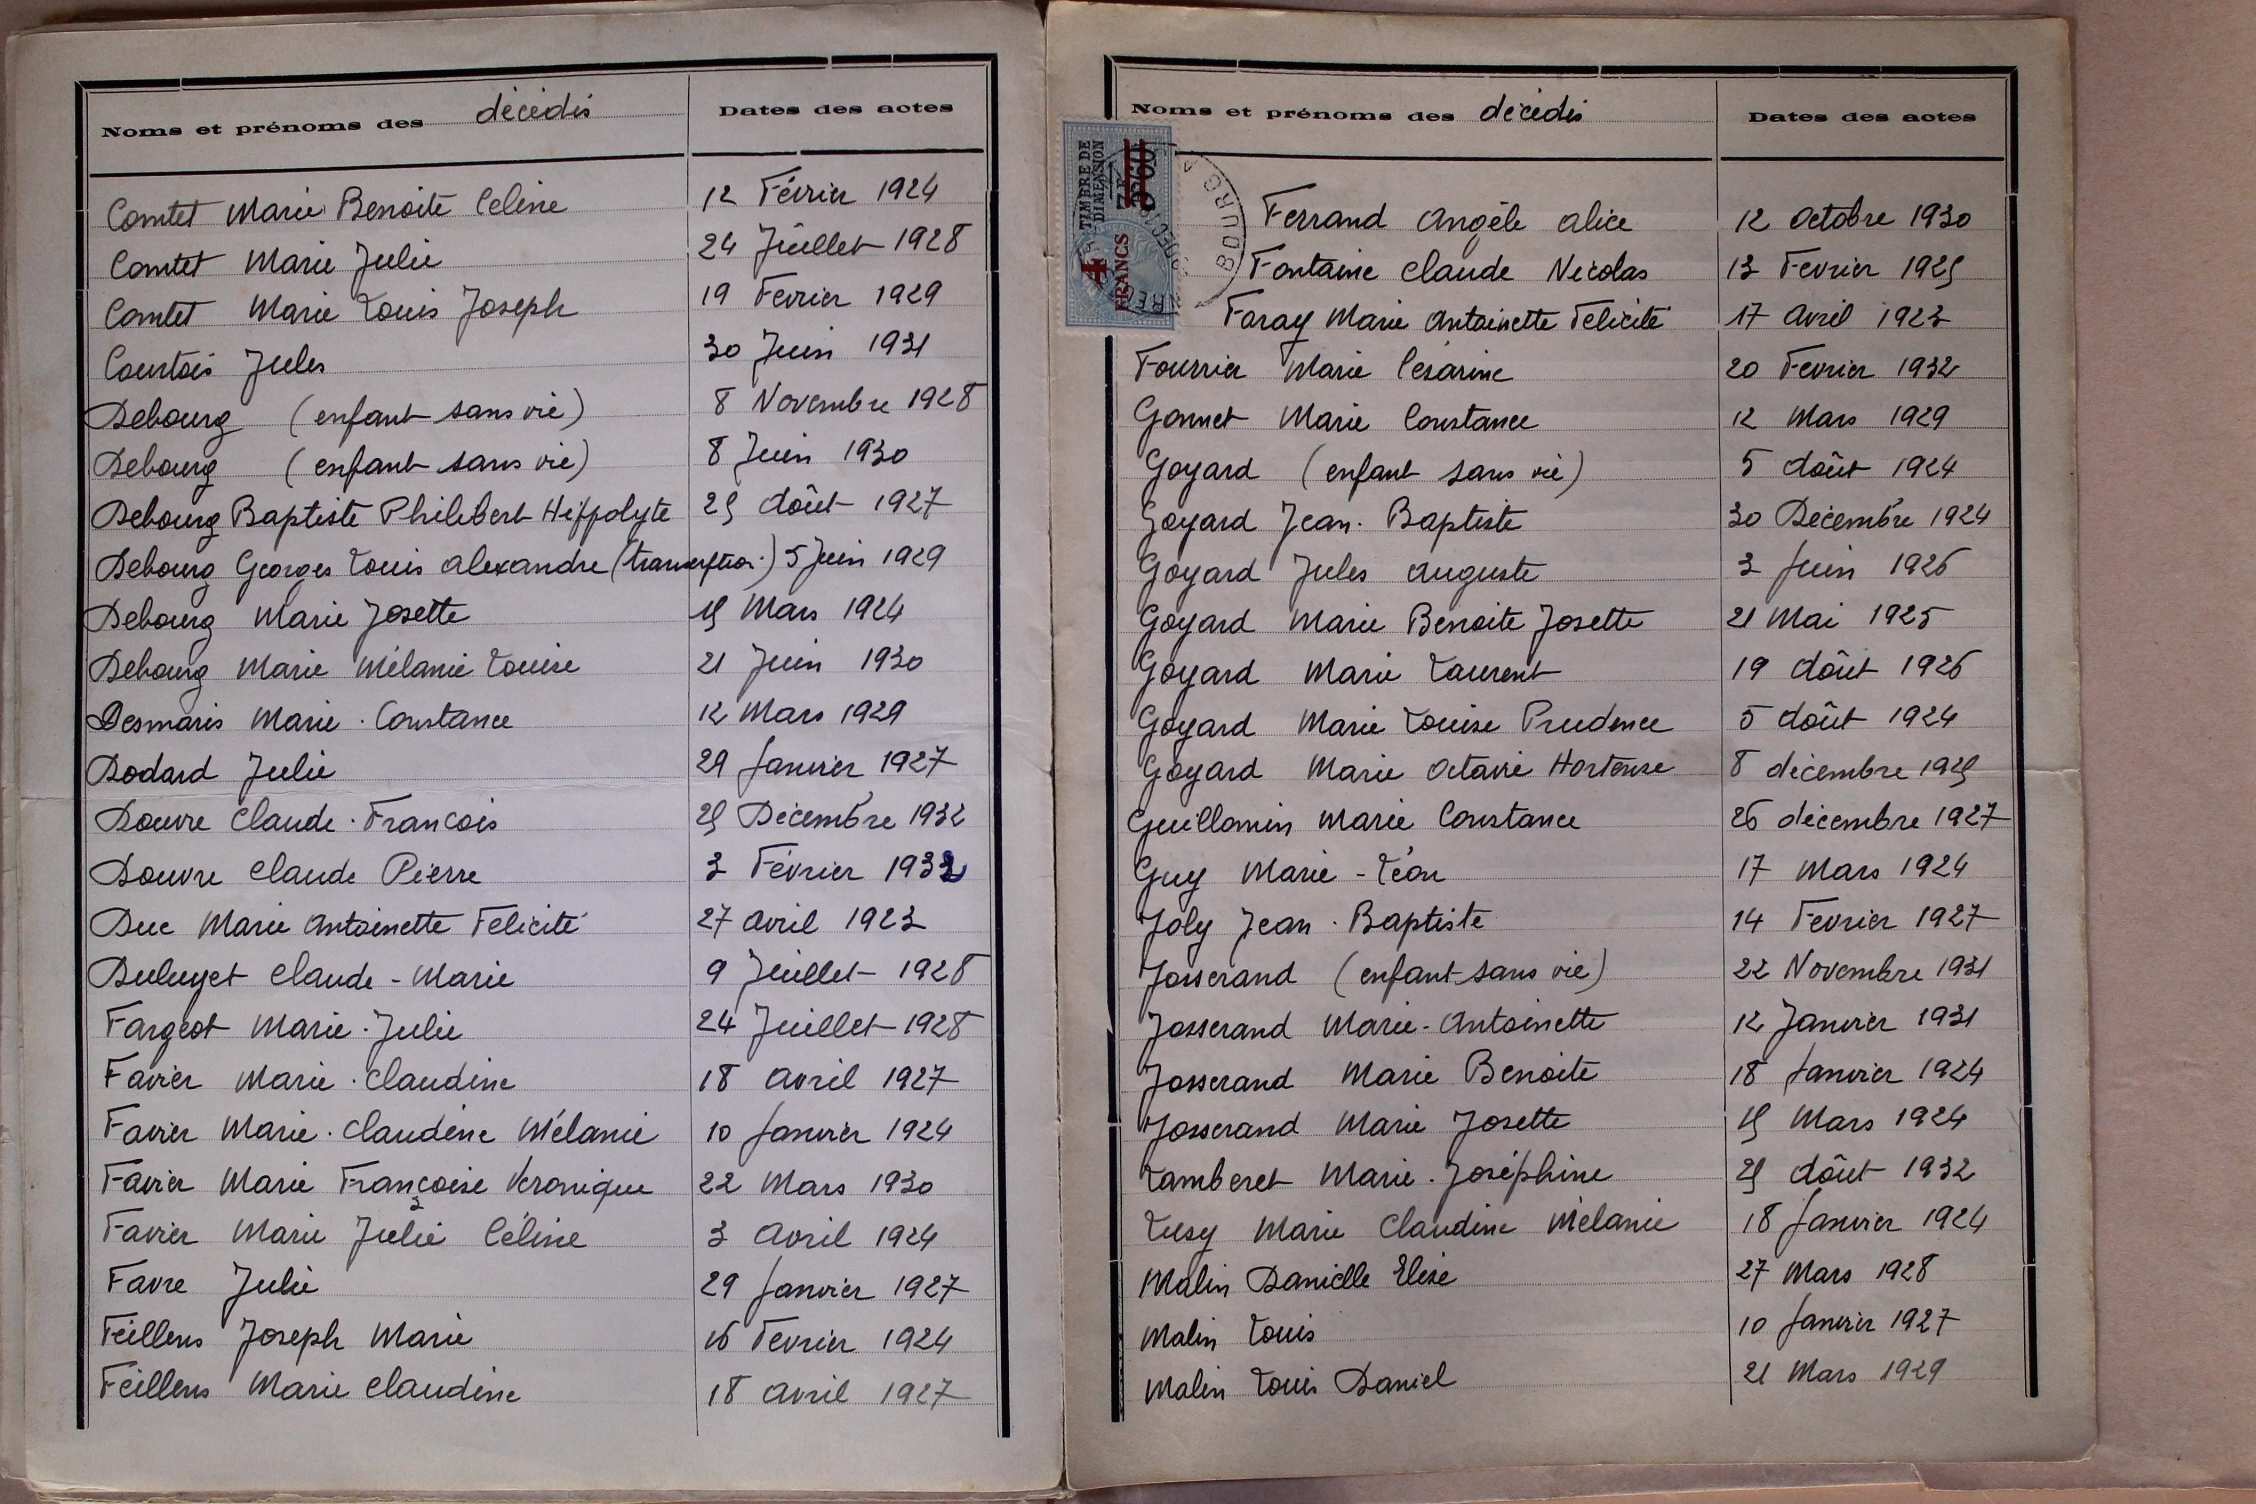 Noms et prénoms des décédés Dates des actes
Comtet Marie Benoite Celine 12 Février 1924
Comtet Marie Julie 24 Juillet 1928
Comtet Marie Louis Joseph 19 Fevrier 1929
Courtois Jules 30 Juin 1931
Debourg (enfant sans vie) 8 Novembre 1928
Debourg (enfant sans vie) 8 Juin 1930
Debourg Baptiste Philibert Hippolyte 25 Août 1927
Debourg Georges Louis Alexandre (transcription) 5 Juin 1929
Debourg Marie Josette 15 Mars 1924
Debourg Marie Mélanie Louise 21 Juin 1930
Desmaris Marie-Constance 12 Mars 1929
Dodard Julie 29 Janvier 1927
Douvre Claude-Francois 25 Décembre 1932
Douvre Claude Pierre 3 Février 1932
Duc Marie Antoinette Felicité 27 Avril 1923
Duluyet Claude-Marie 9 Juillet 1928
Fargeot Marie-Julie 24 Juillet 1928
Favier Marie-Claudine 18 Avril 1927
Favier Marie-Claudine Mélanie 10 Janvier 1924
Favier Marie Françoise Veronique 22 Mars 1930
Favier Marie Julie Céline 3 Avril 1924
Favre Julie 29 Janvier 1927
Feillens Joseph Marie 16 Fevrier 1924
Feillens Marie Claudine 18 Avril 1927
Noms et prénoms des décédés Dates des actes
TIMBRE DE DIMENSION
4 FRANCS
BOURG
Ferrand Angèle Alice 12 Octobre 1930
Fontaine Claude Nicolas 13 Fevrier 1925
Foray Marie Antoinette Felicité 17 Avril 1923
Fourrier Marie Césarine 20 Fevrier 1932
Gonnet Marie Constance 12 Mars 1929
Goyard (enfant sans vie) 5 Août 1924
Goyard Jean-Baptiste 30 Décembre 1924
Goyard Jules Auguste 3 Juin 1926
Goyard Marie Benoite Josette 21 Mai 1925
Goyard Marie Laurent 19 Août 1926
Goyard Marie Louise Prudence 5 Août 1924
Goyard Marie Octavie Hortense 8 décembre 1925
Guillomin Marie Constance 26 décembre 1927
Guy Marie-Léon 17 Mars 1924
Joly Jean-Baptiste 14 Fevrier 1927
Josserand (enfant sans vie) 22 Novembre 1931
Josserand Marie-Antoinette 12 Janvier 1931
Josserand Marie Benoite 18 Janvier 1924
Josserand Marie Josette 15 Mars 1924
Lamberet Marie-Joséphine 25 Août 1932
Lusy Marie Claudine Mélanie 18 Janvier 1924
Malin Danielle Elise 27 Mars 1928
Malin Louis 10 Janvier 1927
Malin Louis Daniel 21 Mars 1929